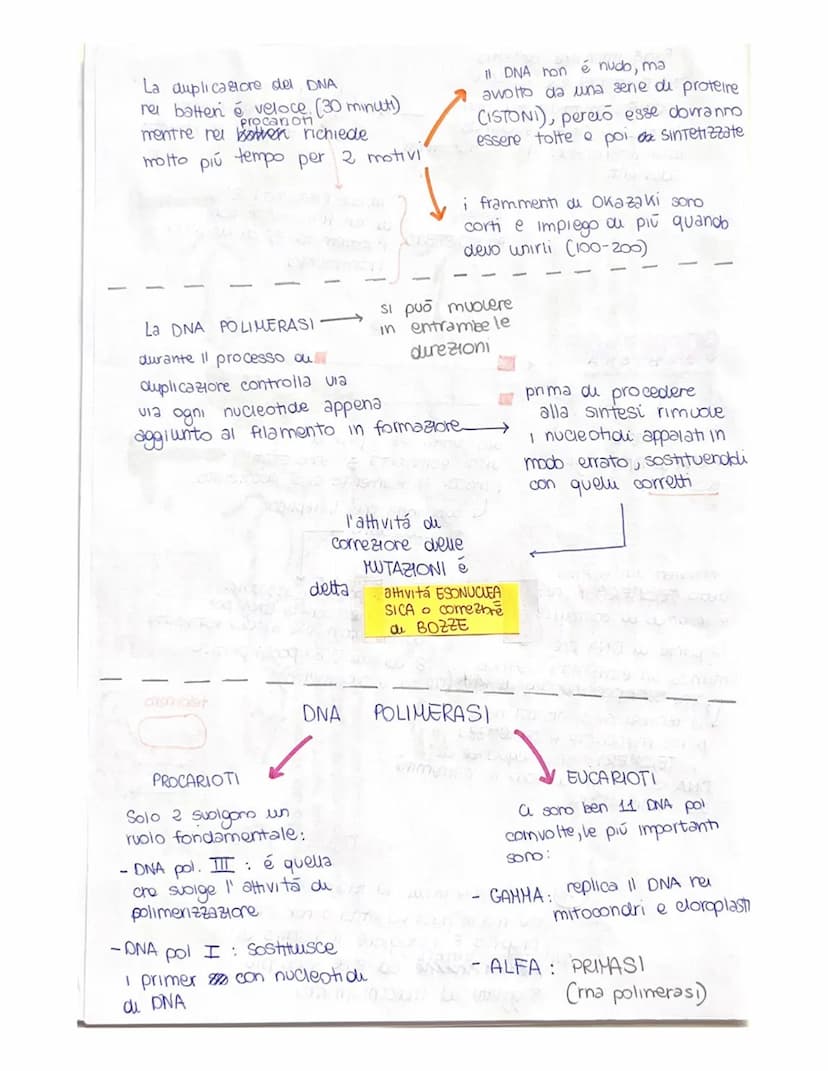 La duplicazione del DNA
nei batteri é veloce (30 minuti)
procarioti
mentre nei batteri richiede
molto piú tempo per 2 motivi
Il DNA non é nudo, ma
avvolto da una serie di proteine
(ISTONI), perció esse dovranno
essere tolte e poi sintetizzate
i frammenti di OKAZAKI sono
corti e impiego di piú quando
devo unirli (100-200)
La DNA POLIMERASI
si puó muovere
in entrambe le
direzioni
durante il processo di
duplicazione controlla via
via ogni nucleotide appena
aggiunto al filamento in formazione
prima di procedere
alla sintesi rimuove
i nucleotidi appaiati in
modo errato, sostituendoli
con quelli corretti
l'attivitá di
correzione delle
MUTAZIONI é
detta
attivitá ESONUCLEA
SICA o correzione
di BOZZE
DNA POLIMERASI
PROCARIOTI
Solo 2 svolgono un
ruolo fondamentale:
- DNA pol. III : é quella
che svolge l'attivitá di
polimerizzazione
- DNA pol I : sostituisce
i primer con nucleotidi
di DNA
EUCARIOTI
Ci sono ben 11 DNA pol
coinvolte, le piú importanti
sono:
- GAMMA: replica il DNA nei
mitocondri e cloroplasti
- ALFA : PRIMASI
(rna polimerasi)